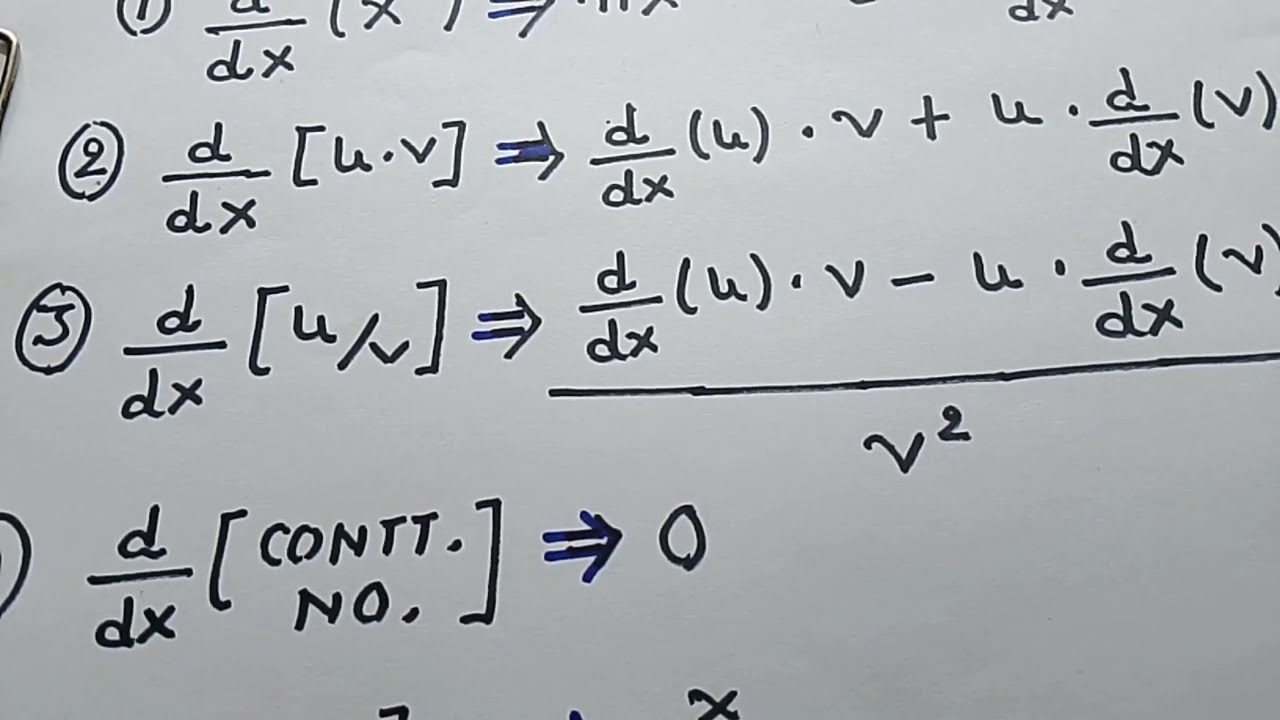 d/dx (x ) ⇒ nx dx
② d/dx [u·v] ⇒ d/dx (u) · v + u · d/dx (v)
③ d/dx [u/v] ⇒ (d/dx (u) · v − u · d/dx (v)) / v²
d/dx [CONTT. NO.] ⇒ 0
x